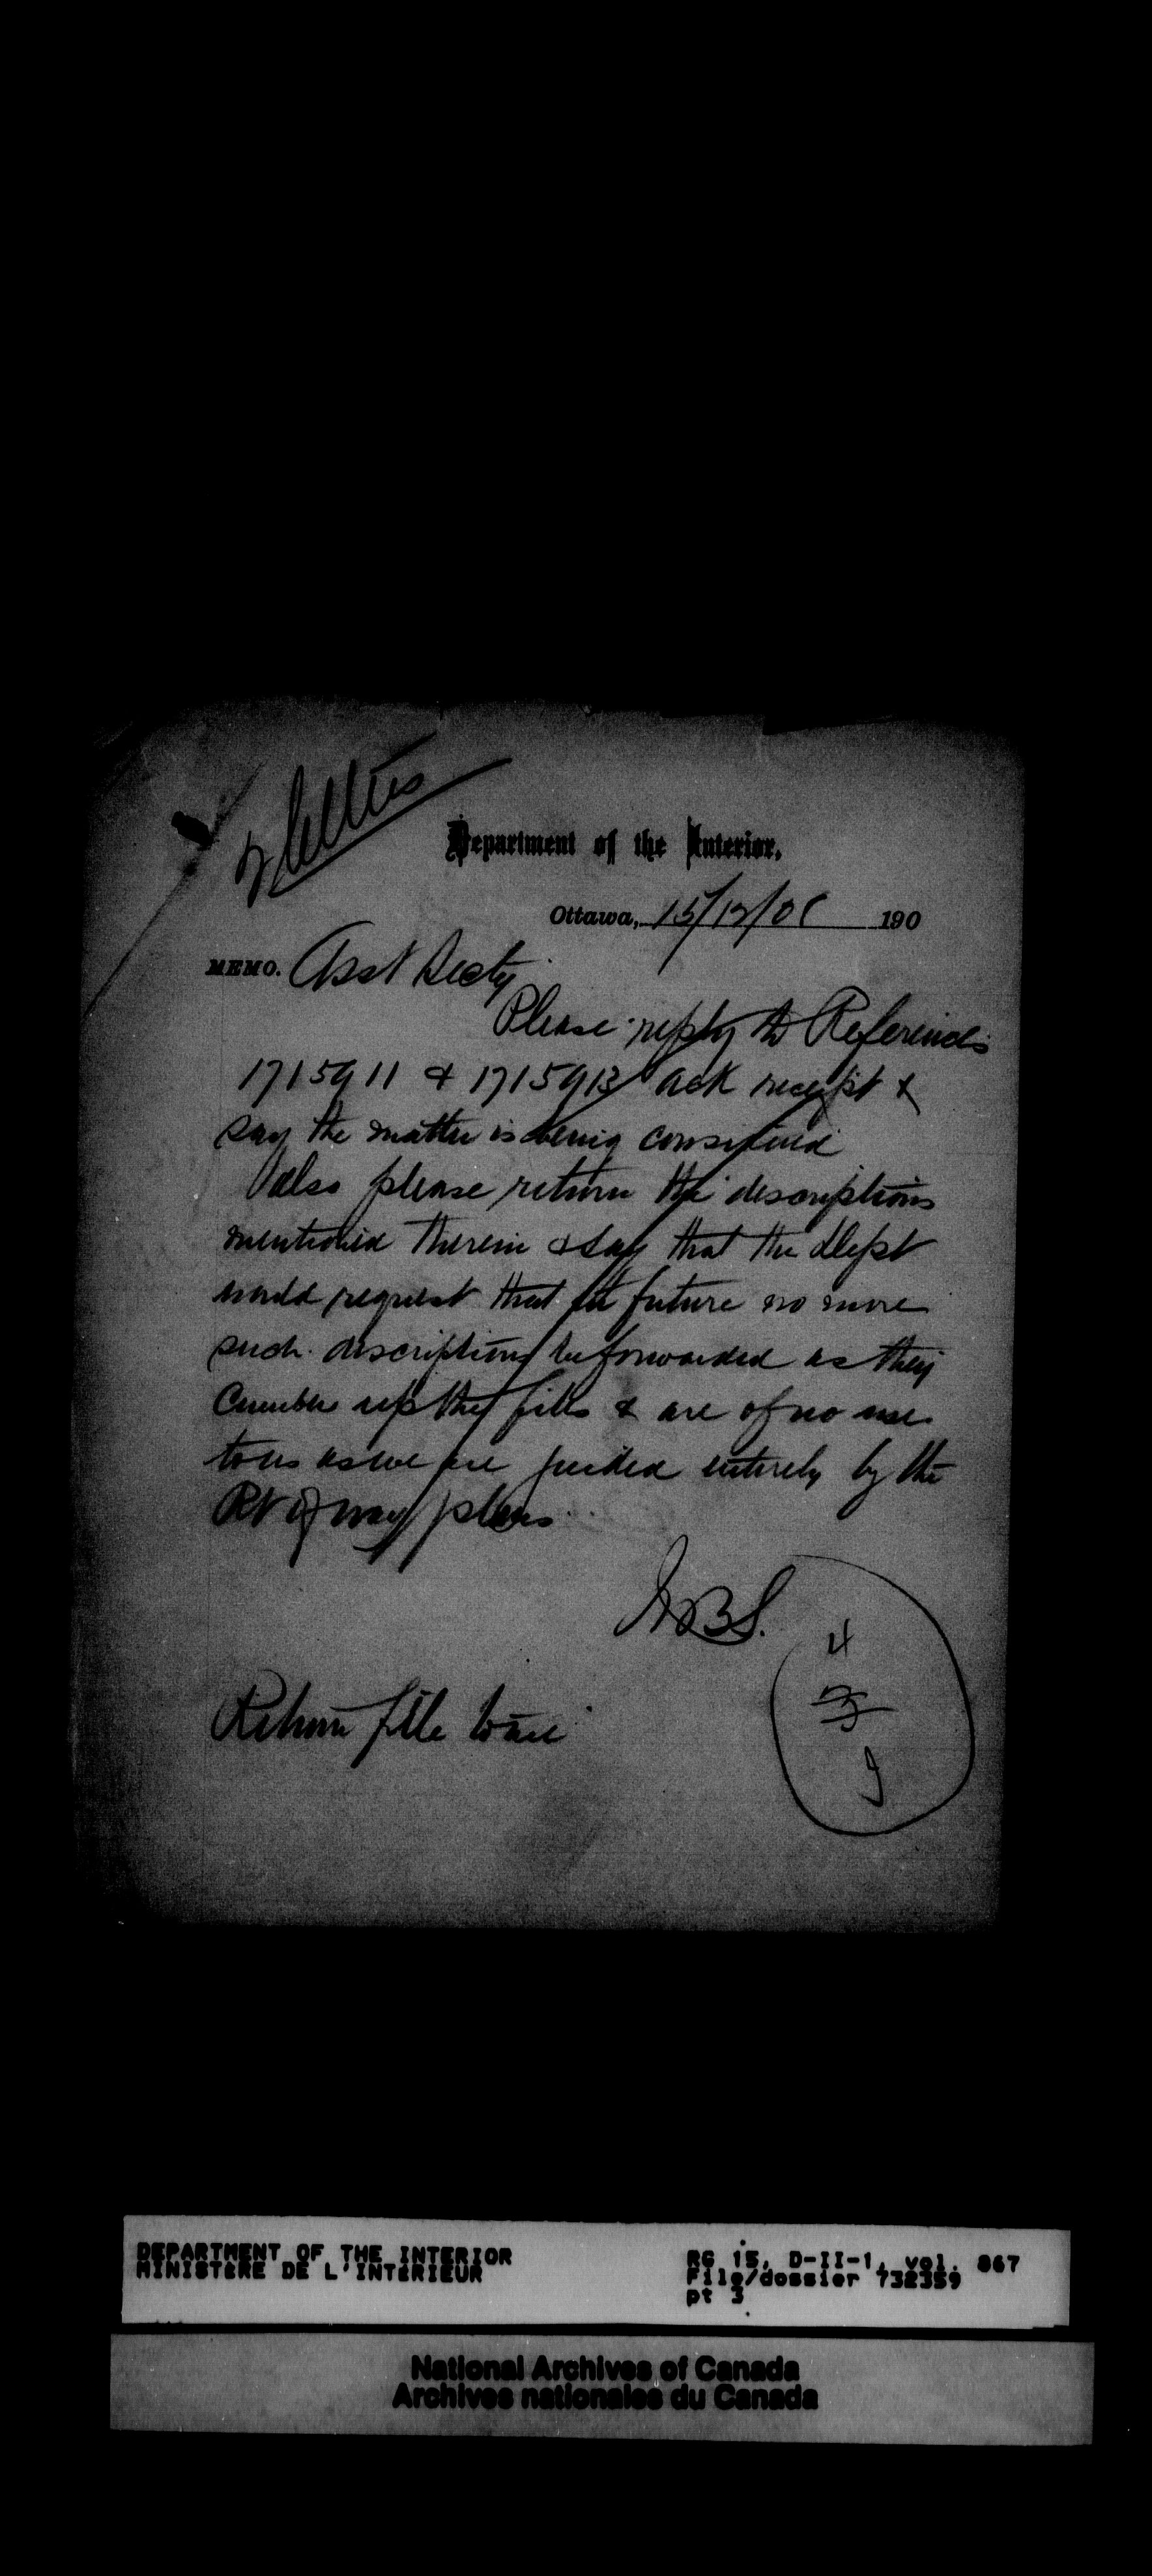 2 letters
Department of the Interior,
Ottawa, 15/12/08 190
MEMO. Asst Secty
Please reply to References
1715911 & 1715913 ack receipt &
say the matter is being considered
also please return the descriptions
mentioned therein & say that the Dept
would request that in future no more
such descriptions be forwarded as they
cumber up the files & are of no use
to us as we are guided entirely by the
Rt of way plans
Return file to me
4
DEPARTMENT OF THE INTERIOR
MINISTERE DE L'INTERIEUR
RG 15, D-II-1, vol. 867
File/dossier 732359
pt 3
National Archives of Canada
Archives nationales du Canada